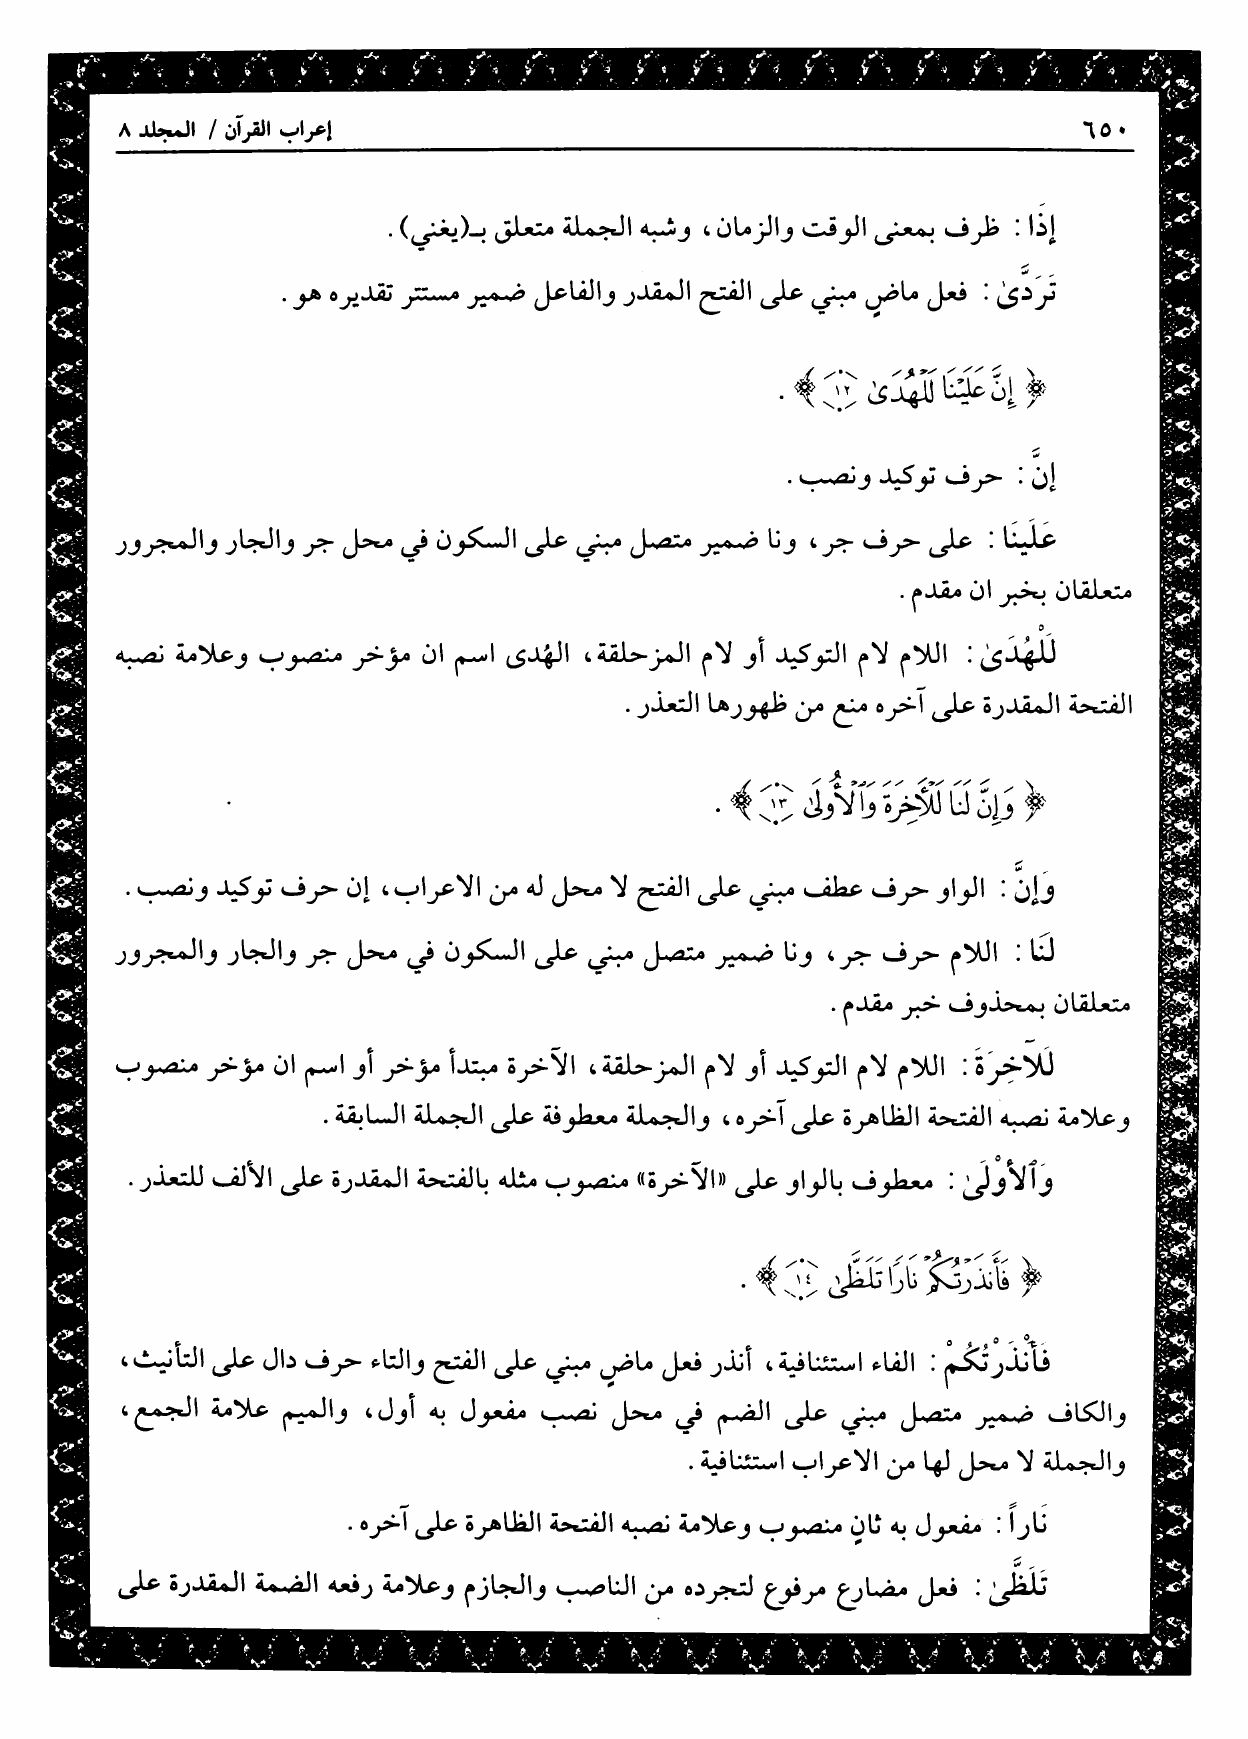 ٦٥٠
إعراب القرآن / المجلد ٨
إذَا : ظرف بمعنى الوقت والزمان، وشبه الجملة متعلق بـ(يغني).
تَرَدَّىٰ : فعل ماضٍ مبني على الفتح المقدر والفاعل ضمير مستتر تقديره هو.
﴿ إِنَّ عَلَيْنَا لَلْهُدَىٰ ١٢ ﴾.
إنَّ : حرف توكيد ونصب.
عَلَينَا : على حرف جر، ونا ضمير متصل مبني على السكون في محل جر والجار والمجرور
متعلقان بخبر ان مقدم.
لَلْهُدَىٰ : اللام لام التوكيد أو لام المزحلقة، الهُدى اسم ان مؤخر منصوب وعلامة نصبه
الفتحة المقدرة على آخره منع من ظهورها التعذر.
﴿ وَإِنَّ لَنَا لَلْآخِرَةَ وَٱلْأُولَىٰ ١٣ ﴾.
وَإنَّ : الواو حرف عطف مبني على الفتح لا محل له من الاعراب، إن حرف توكيد ونصب.
لَنَا : اللام حرف جر، ونا ضمير متصل مبني على السكون في محل جر والجار والمجرور
متعلقان بمحذوف خبر مقدم.
لَلآخِرَةَ : اللام لام التوكيد أو لام المزحلقة، الآخرة مبتدأ مؤخر أو اسم ان مؤخر منصوب
وعلامة نصبه الفتحة الظاهرة على آخره، والجملة معطوفة على الجملة السابقة.
وَٱلأوْلَىٰ : معطوف بالواو على «الآخرة» منصوب مثله بالفتحة المقدرة على الألف للتعذر.
﴿ فَأَنذَرْتُكُمْ نَارًا تَلَظَّىٰ ١٤ ﴾.
فَأَنْذَرْتُكُمْ : الفاء استئنافية، أنذر فعل ماضٍ مبني على الفتح والتاء حرف دال على التأنيث،
والكاف ضمير متصل مبني على الضم في محل نصب مفعول به أول، والميم علامة الجمع،
والجملة لا محل لها من الاعراب استئنافية.
نَاراً : مفعول به ثانٍ منصوب وعلامة نصبه الفتحة الظاهرة على آخره.
تَلَظَّىٰ : فعل مضارع مرفوع لتجرده من الناصب والجازم وعلامة رفعه الضمة المقدرة على